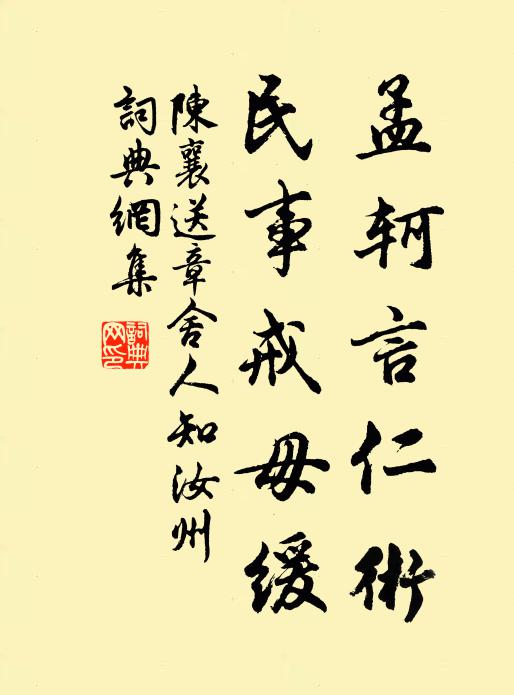 孟軻言仁術
民事戒毋緩
陳襄送章舍人知汝州
詞典網集
詞典网印